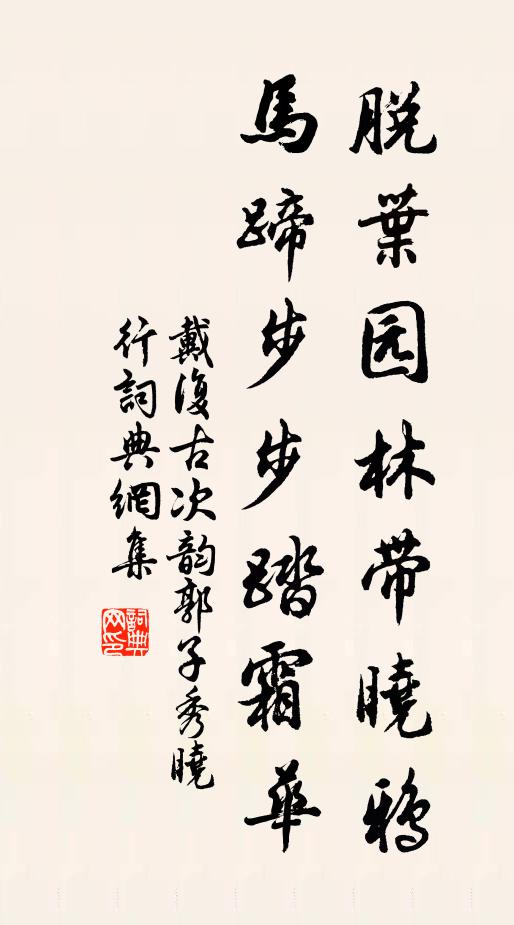 脫葉园林帶曉鴉
馬蹄步步踏霜華
戴復古次韵郭子秀曉
行詞典網集
詞典网印